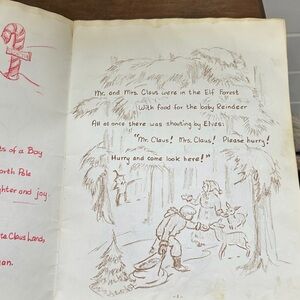 ts of a Boy
orth Pole
ghter and joy
ta Claus Land,
an.
Mr. and Mrs. Claus were in the Elf Forest
With food for the baby Reindeer
All at once there was shouting by Elves:
"Mr. Claus! Mrs. Claus! Please hurry!
Hurry and come look here!"